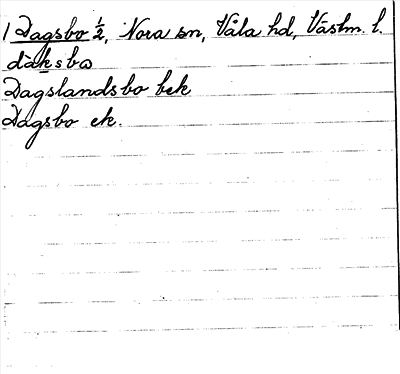 1 Dagsbo ½, Nora sn, Våla hd, Västm. l.
dàksbω
Dagslandsbo bek
Dagsbo ek.